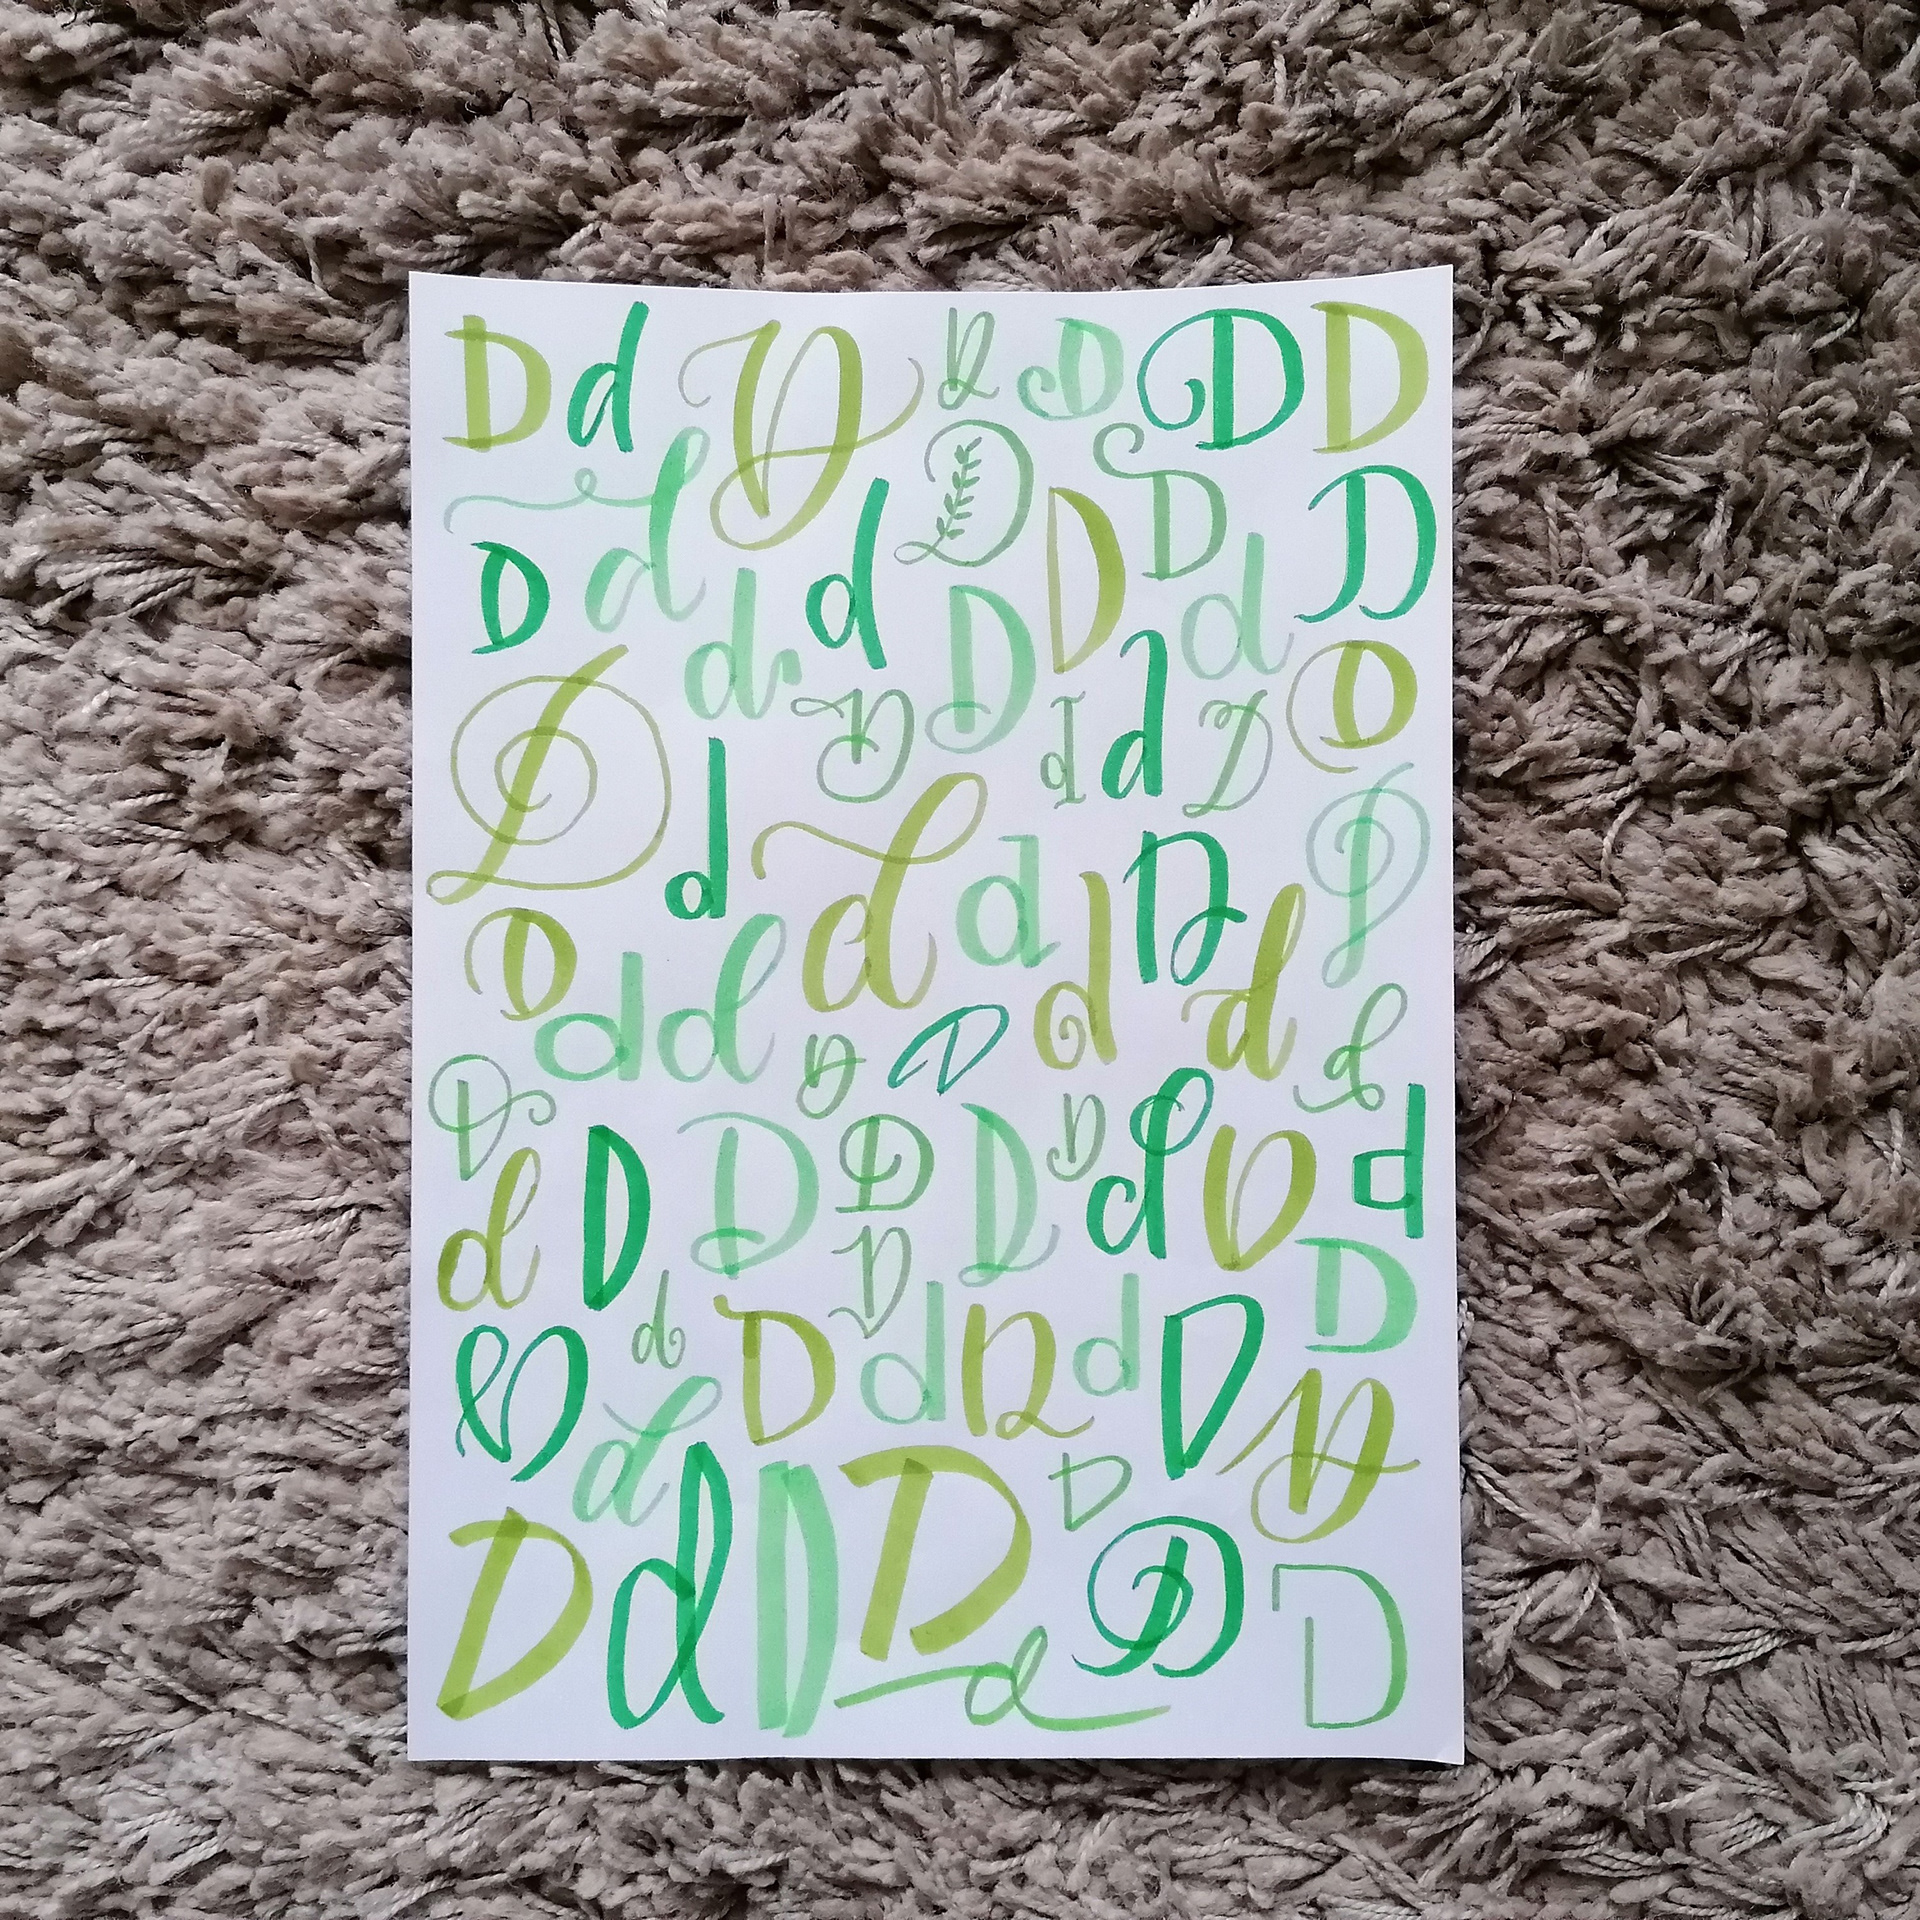 D d D D D D D
d D D
D d d D D d D
d D D
D d D d d D D
d d d D D
D d d D D d d d
D D D D D D d D d
d D d D D
D d D d D d D D
d D
D d D D d D D